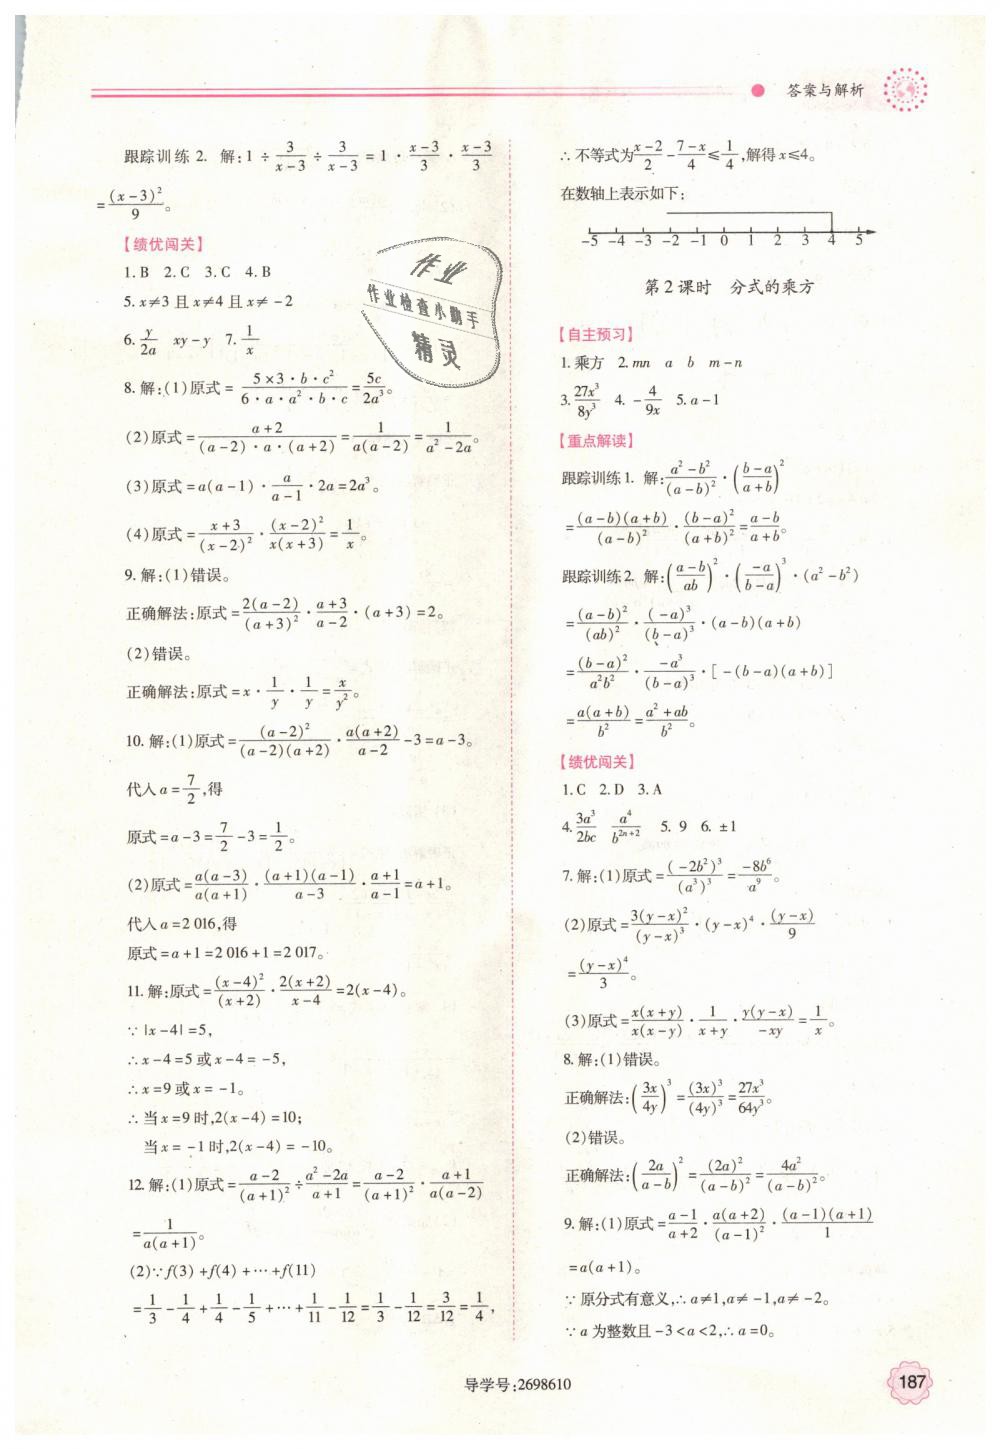 答案与解析
跟踪训练2. 解:1÷3/(x-3)÷3/(x-3)=1·(x-3)/3·(x-3)/3
=(x-3)²/9。
【绩优闯关】
1.B 2.C 3.C 4.B
5.x≠3且x≠4且x≠-2
6.y/2a xy-y 7.1/x
8.解:(1)原式=(5×3·b·c²)/(6·a·a²·b·c)=5c/2a³。
(2)原式=(a+2)/((a-2)·a·(a+2))=1/(a(a-2))=1/(a²-2a)。
(3)原式=a(a-1)·a/(a-1)·2a=2a³。
(4)原式=(x+3)/(x-2)²·(x-2)²/(x(x+3))=1/x。
9.解:(1)错误。
正确解法:原式=2(a-2)/(a+3)²·(a+3)/(a-2)·(a+3)=2。
(2)错误。
正确解法:原式=x·1/y·1/y=x/y²。
10.解:(1)原式=(a-2)²/((a-2)(a+2))·a(a+2)/(a-2)-3=a-3。
代入a=7/2,得
原式=a-3=7/2-3=1/2。
(2)原式=a(a-3)/(a(a+1))·(a+1)(a-1)/(a-3)·(a+1)/(a-1)=a+1。
代入a=2 016,得
原式=a+1=2 016+1=2 017。
11.解:原式=(x-4)²/(x+2)·2(x+2)/(x-4)=2(x-4)。
∵|x-4|=5,
∴x-4=5或x-4=-5,
∴x=9或x=-1。
∴当x=9时,2(x-4)=10;
当x=-1时,2(x-4)=-10。
12.解:(1)原式=(a-2)/(a+1)²÷(a²-2a)/(a+1)=(a-2)/(a+1)²·(a+1)/(a(a-2))
=1/(a(a+1))。
(2)∵f(3)+f(4)+…+f(11)
=1/3-1/4+1/4-1/5+…+1/11-1/12=1/3-1/12=3/12=1/4,
作业
作业检查小助手
精灵
∴不等式为(x-2)/2-(7-x)/4≤1/4,解得x≤4。
在数轴上表示如下:
-5 -4 -3 -2 -1 0 1 2 3 4 5
第2课时 分式的乘方
【自主预习】
1.乘方 2.mn a b m-n
3.27x³/8y³ 4.-4/9x 5.a-1
【重点解读】
跟踪训练1. 解:(a²-b²)/(a-b)²·((b-a)/(a+b))²
=(a-b)(a+b)/(a-b)²·(b-a)²/(a+b)²=(a-b)/(a+b)。
跟踪训练2. 解:((a-b)/ab)²·(-a/(b-a))³·(a²-b²)
=(a-b)²/(ab)²·(-a)³/(b-a)³·(a-b)(a+b)
=(b-a)²/a²b²·-a³/(b-a)³·[-(b-a)(a+b)]
=a(a+b)/b²=(a²+ab)/b²。
【绩优闯关】
1.C 2.D 3.A
4.3a³/2bc a⁴/b²ⁿ⁺² 5.9 6.±1
7.解:(1)原式=(-2b²)³/(a³)³=-8b⁶/a⁹。
(2)原式=3(y-x)²/(y-x)³·(y-x)⁴·(y-x)/9
=(y-x)⁴/3。
(3)原式=x(x+y)/(x(x-y))·1/(x+y)·y(y-x)/(-xy)=1/x。
8.解:(1)错误。
正确解法:(3x/4y)³=(3x)³/(4y)³=27x³/64y³。
(2)错误。
正确解法:(2a/(a-b))²=(2a)²/(a-b)²=4a²/(a-b)²。
9.解:(1)原式=(a-1)/(a+2)·a(a+2)/(a-1)²·(a-1)(a+1)/1
=a(a+1)。
∵原分式有意义,∴a≠1,a≠-1,a≠-2。
∵a为整数且-3<a<2,∴a=0。
导学号:2698610
187